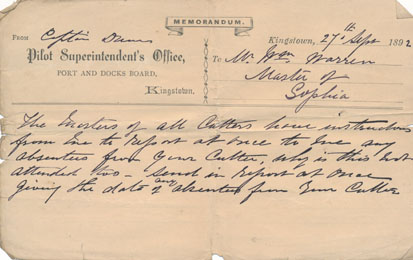 MEMORANDUM.
FROM Captain
Kingstown, 27th Sept 1892
Pilot Superintendent's Office,
PORT AND DOCKS BOARD,
Kingstown.
To Mr Wm Warren
Master of
Sophia
The Masters of all Cutters have instructions
from me to report at once to me any
absentees from your Cutter, why is this not
attended too - send in report at once
giving the date of any absentees from your Cutter